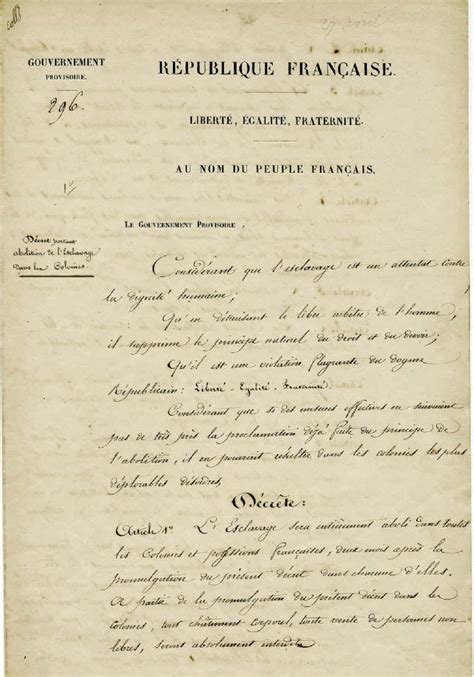 coll.
27 avril
GOUVERNEMENT
PROVISOIRE.
296.
RÉPUBLIQUE FRANÇAISE.
LIBERTÉ, ÉGALITÉ, FRATERNITÉ.
AU NOM DU PEUPLE FRANÇAIS.
LE GOUVERNEMENT PROVISOIRE,
Décret portant
abolition de l'Esclavage
dans les Colonies.
Considérant que l'esclavage est un attentat contre
la dignité humaine;
Qu'en détruisant le libre arbitre de l'homme,
il supprime le principe naturel du droit et du devoir;
Qu'il est une violation flagrante du dogme
Républicain: Liberté - Egalité - Fraternité
Considérant que si des mesures effectives ne suivaient
pas de très près la proclamation déjà faite du principe de
l'abolition, il en pourrait résulter dans les colonies les plus
déplorables désordres,
Décrète:
Article 1er L'Esclavage sera entièrement aboli dans toutes
les Colonies et possessions françaises, deux mois après la
promulgation du présent décret dans chacune d'elles.
A partir de la promulgation du présent décret dans les
Colonies, tout châtiment corporel, toute vente de personnes non
libres, seront absolument interdits